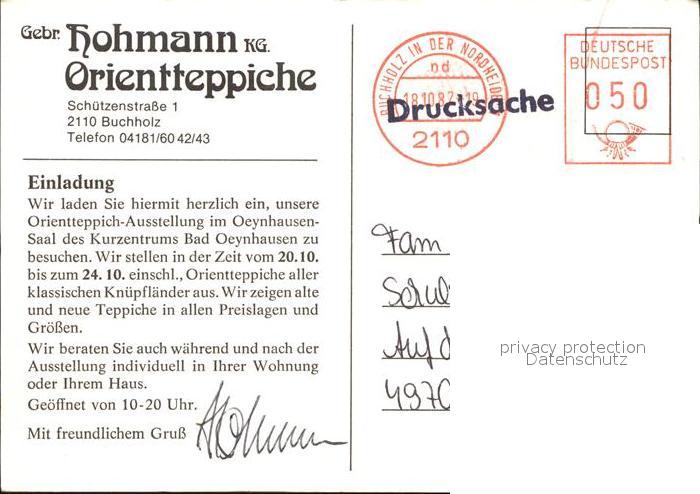 Gebr. Hohmann KG.
Orientteppiche
Schützenstraße 1
2110 Buchholz
Telefon 04181/60 42/43
Einladung
Wir laden Sie hiermit herzlich ein, unsere
Orientteppich-Ausstellung im Oeynhausen-
Saal des Kurzentrums Bad Oeynhausen zu
besuchen. Wir stellen in der Zeit vom 20.10.
bis zum 24.10. einschl., Orientteppiche aller
klassischen Knüpfländer aus. Wir zeigen alte
und neue Teppiche in allen Preislagen und
Größen.
Wir beraten Sie auch während und nach der
Ausstellung individuell in Ihrer Wohnung
oder Ihrem Haus.
Geöffnet von 10-20 Uhr.
Mit freundlichem Gruß
BUCHHOLZ IN DER NORDHEIDE
nd
18.10.82
2110
Drucksache
DEUTSCHE
BUNDESPOST
050
Fam
Auf d
4970
privacy protection
Datenschutz